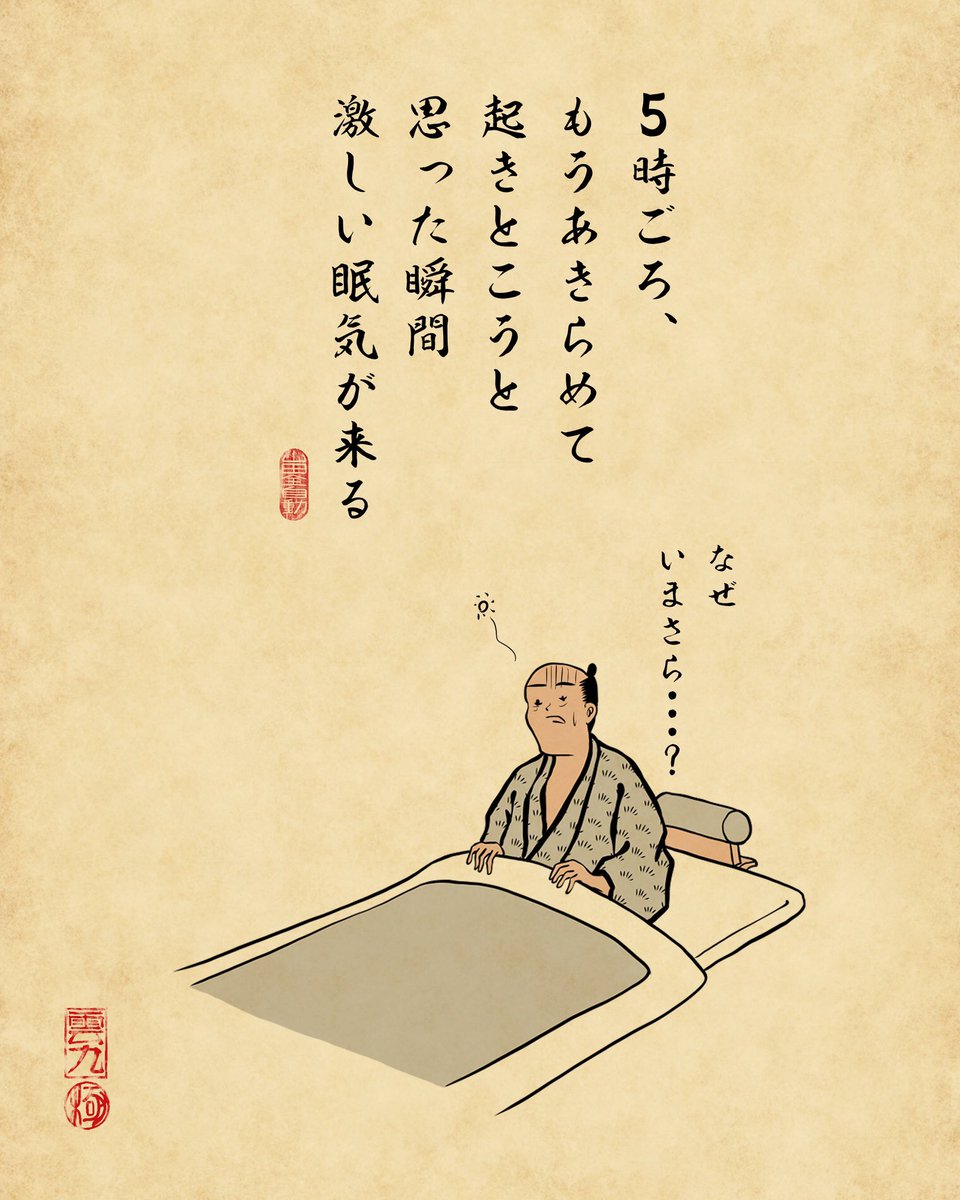 5時ごろ、
もうあきらめて
起きとこうと
思った瞬間
激しい眠気が来る
なぜ
いまさら・・・?